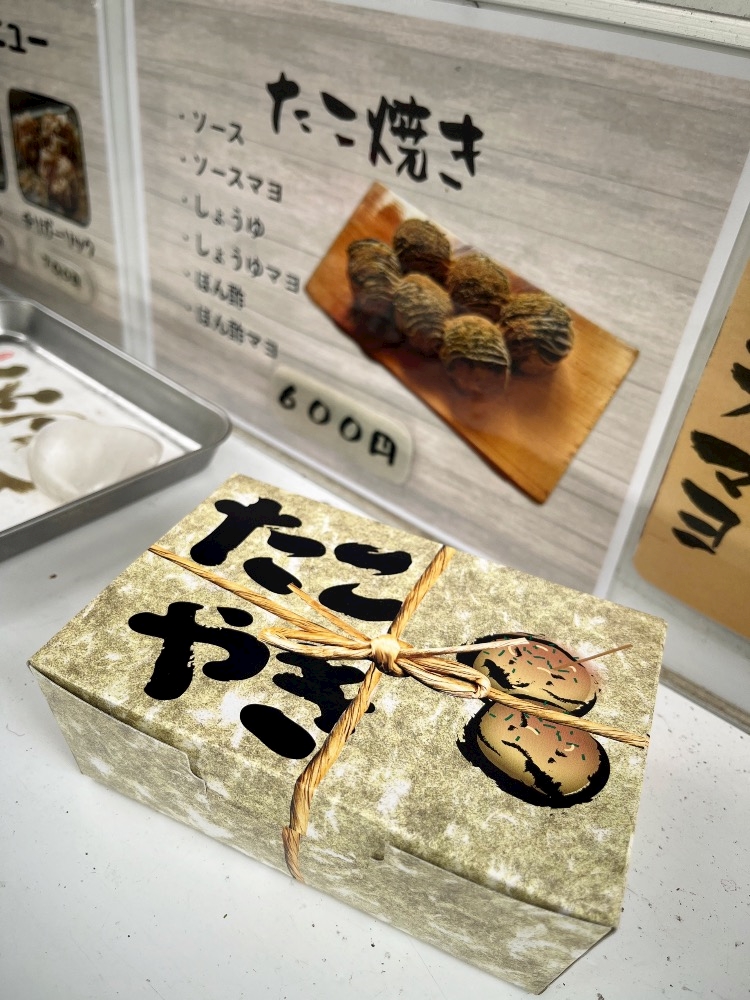 ニュー
チリガーリック
たこ焼き
・ソース
・ソースマヨ
・しょうゆ
・しょうゆマヨ
・ぽん酢
・ぽん酢マヨ
600円
たこ
やき